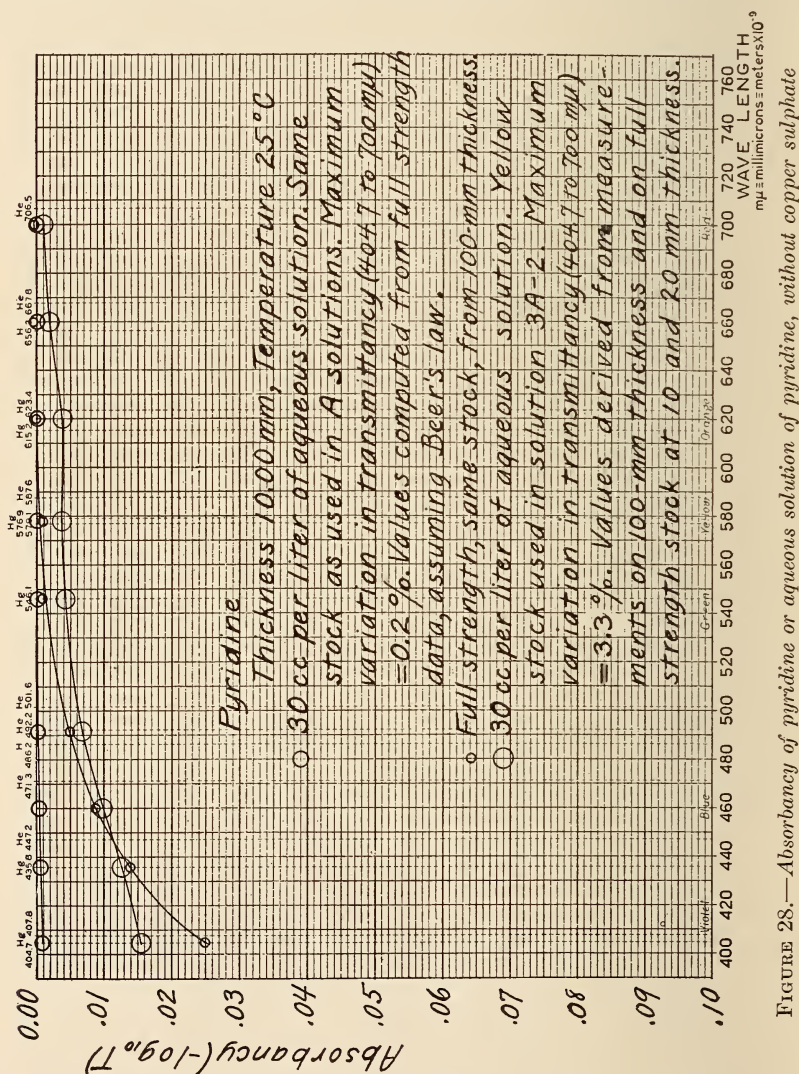 Hg
404.7 407.8
Hg
435.8
He
447.2
He
471.3
H
486.2
He
492.2
He
501.6
Hg
546.1
Hg
576.9
579.1
He
587.6
Hg
615.2
Hg
623.4
H
656.3
He
667.8
He
706.5
Absorbancy (-log₁₀T)
0.00
.01
.02
.03
.04
.05
.06
.07
.08
.09
.10
Pyridine
Thickness 10.00 mm, Temperature 25°C
○ 30 cc per liter of aqueous solution. Same
stock as used in A solutions. Maximum
variation in transmittancy (404.7 to 700 mμ)
=0.2%. Values computed from full strength
data, assuming Beer's law.
○ Full strength, same stock, from 100-mm thickness.
○ 30 cc per liter of aqueous solution. Yellow
stock used in solution 3A-2. Maximum
variation in transmittancy (404.7 to 700 mμ)
=3.3%. Values derived from measure-
ments on 100-mm thickness and on full
strength stock at 10 and 20 mm thickness.
Violet Blue Green Yellow Orange Red
400 420 440 460 480 500 520 540 560 580 600 620 640 660 680 700 720 740 760
WAVE LENGTH
mμ≡millimicrons≡meters×10⁻⁹
FIGURE 28.—Absorbancy of pyridine or aqueous solution of pyridine, without copper sulphate